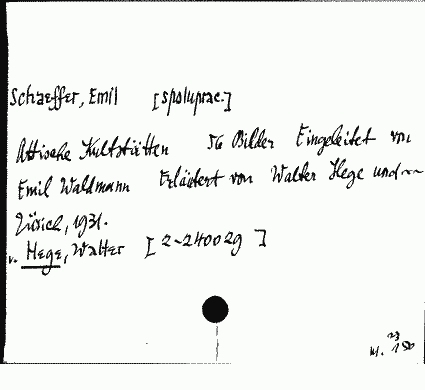 Schaeffer, Emil [spoluprac.]
Attische Kultstätten 56 Bilder Eingeleitet von
Emil Waldmann Erläutert von Walter Hege und
Zürich, 1931.
v. Hege, Walter [2-24002g]
23
150